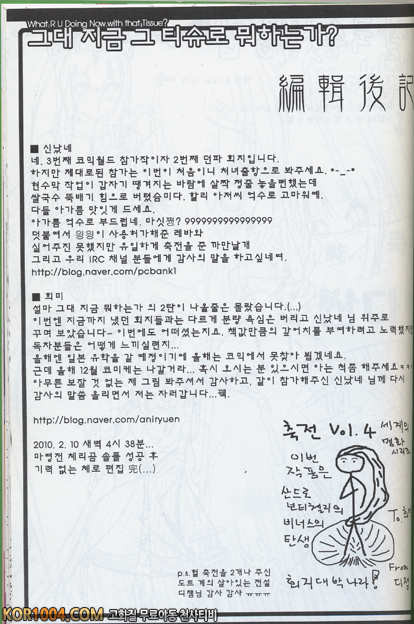 What R U Doing Now with that Tissue?
그대 지금 그 티슈로 뭐하는가?
編輯後記
■ 신났네
네. 3번째 코믹월드 참가작이자 2번째 던파 회지입니다.
하지만 제대로된 참가는 이번이 처음이니 처녀출항으로 봐주세요. *-_-*
현수막 작업이 갑자기 땡겨지는 바람에 살짝 정줄 놓을뻔했는데
쌀국수 뚝배기 힘으로 버텼습미다. 칼리 아저씨 억수로 고마워예.
다들 아가름 맛있게 드세요.
아가름 억수로 부드럽네. 마싯쪙? 9999999999999999
덧붙여서 잉잉이 사용허가해준 레바와
실어주진 못했지만 유일하게 축전을 준 까만날개
그리고 우리 IRC 채널 분들에게 감사의 말을 하고싶네여.
http://blog.naver.com/pcbank1
■ 희미
설마 그대 지금 뭐하는가 의 2탄이 나올줄은 몰랐습니다.(...)
이번엔 지금까지 냈던 회지들과는 다르게 분량 욕심은 버리고 신났네 님 위주로
꾸며 보았습니다~ 이번에도 어떠셨는지요. 책값만큼의 값어치를 부여하려고 노력했지만
독자분들은 어떻게 느끼실런지...
올해엔 일본 유학을 갈 예정이기에 올해는 코믹에서 못찾아 뵙겠네요.
근데 올해 12월 코미케는 나갈거라... 혹시 오시는 분 있으시면 아는 척좀 해주세요
아무튼 보잘 것 없는 제 그림 봐주셔서 감사하고, 같이 참가해주신 신났네 님께 다시
감사의 말씀 올리면서 저는 자러갑니다...꽥.
http://blog.naver.com/aniryuen
2010. 2. 10 새벽 4시 38분...
마영전 체리곰 솔플 성공 후
기력 없는 체로 편집 完(...)
축전 Vol.4
세계의
명화
시리즈
이번
작품은
산드로
보티첼리의
비너스의
탄생
From
회지대박나라!
p.s.컬 축전을 2개나 주신
도트 계의 살아있는 전설
디젬님 감사 감사 ㅠㅠㅠ
KOR1004.COM 고화질 무료야동 천사티비